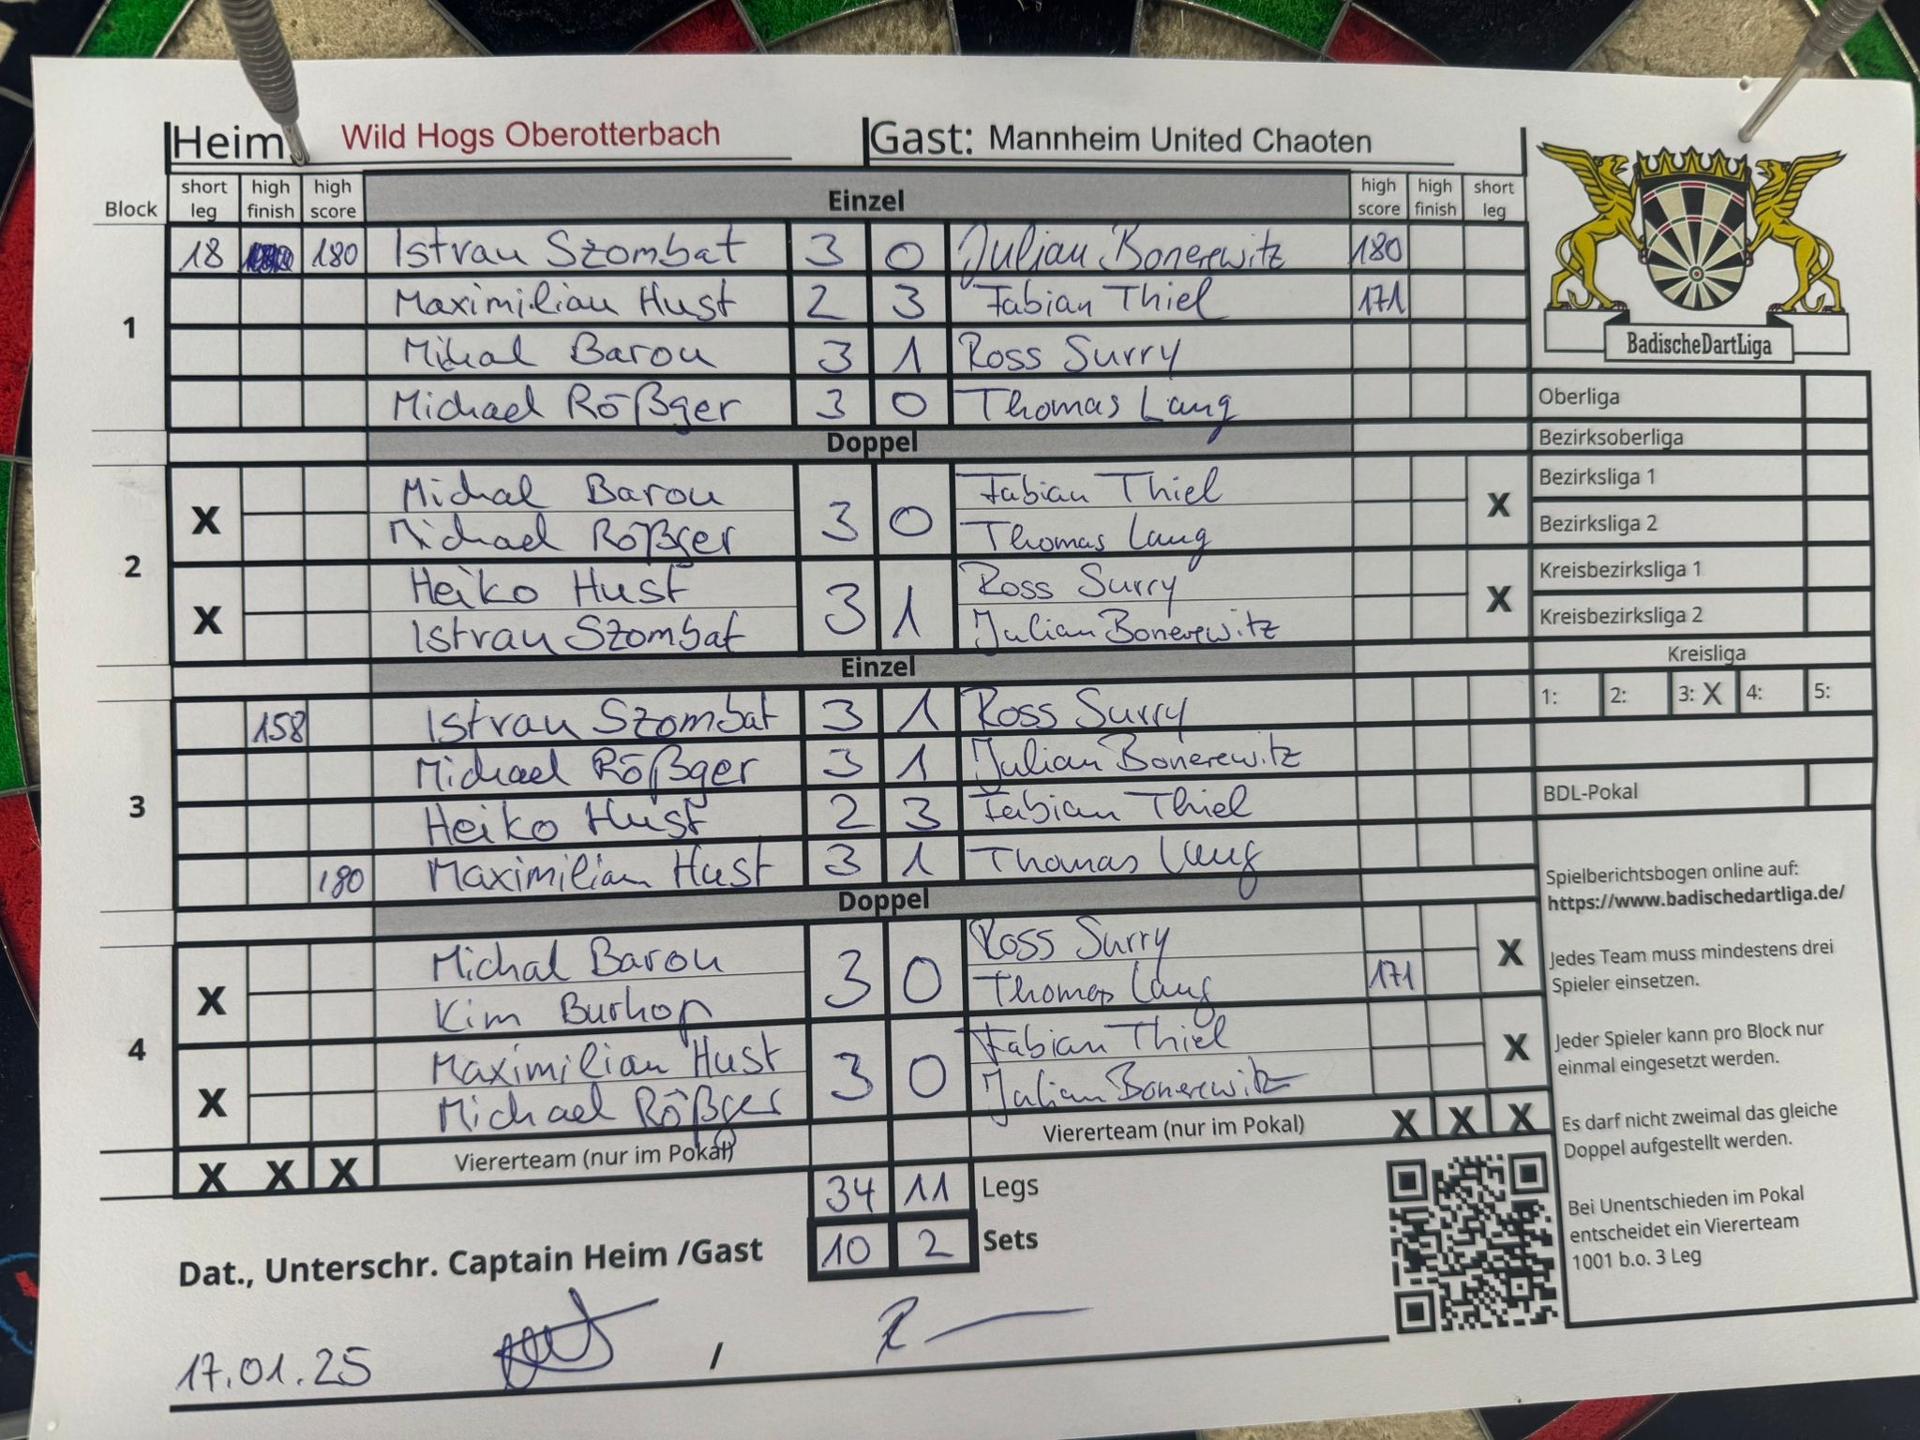 Heim: Wild Hogs Oberotterbach Gast: Mannheim United Chaoten
Block short leg high finish high score Einzel high score high finish short leg
18 180 Istvan Szombat 3 0 Julian Bonerewitz 180
Maximilian Hust 2 3 Fabian Thiel 171
1
Michal Baron 3 1 Ross Surry
Michael Rößger 3 0 Thomas Lang
Doppel
Michal Baron Fabian Thiel
X 3 0 X
Michael Rößger Thomas Lang
2
Heiko Hust Ross Surry
X 3 1 X
Istvan Szombat Julian Bonerewitz
Einzel
158 Istvan Szombat 3 1 Ross Surry
Michael Rößger 3 1 Julian Bonerewitz
3
Heiko Hust 2 3 Fabian Thiel
180 Maximilian Hust 3 1 Thomas Lang
Doppel
Michal Baron Ross Surry
X 3 0 X
Kim Burhop Thomas Lang 171
4
Maximilian Hust Fabian Thiel
X 3 0 X
Michael Rößger Julian Bonerewitz
X X X Viererteam (nur im Pokal) Viererteam (nur im Pokal) X X X
34 11 Legs
10 2 Sets
Dat., Unterschr. Captain Heim /Gast
17.01.25 /
BadischeDartLiga
Oberliga
Bezirksoberliga
Bezirksliga 1
Bezirksliga 2
Kreisbezirksliga 1
Kreisbezirksliga 2
Kreisliga
1: 2: 3: X 4: 5:
BDL-Pokal
Spielberichtsbogen online auf:
https://www.badischedartliga.de/
Jedes Team muss mindestens drei
Spieler einsetzen.
Jeder Spieler kann pro Block nur
einmal eingesetzt werden.
Es darf nicht zweimal das gleiche
Doppel aufgestellt werden.
Bei Unentschieden im Pokal
entscheidet ein Viererteam
1001 b.o. 3 Leg